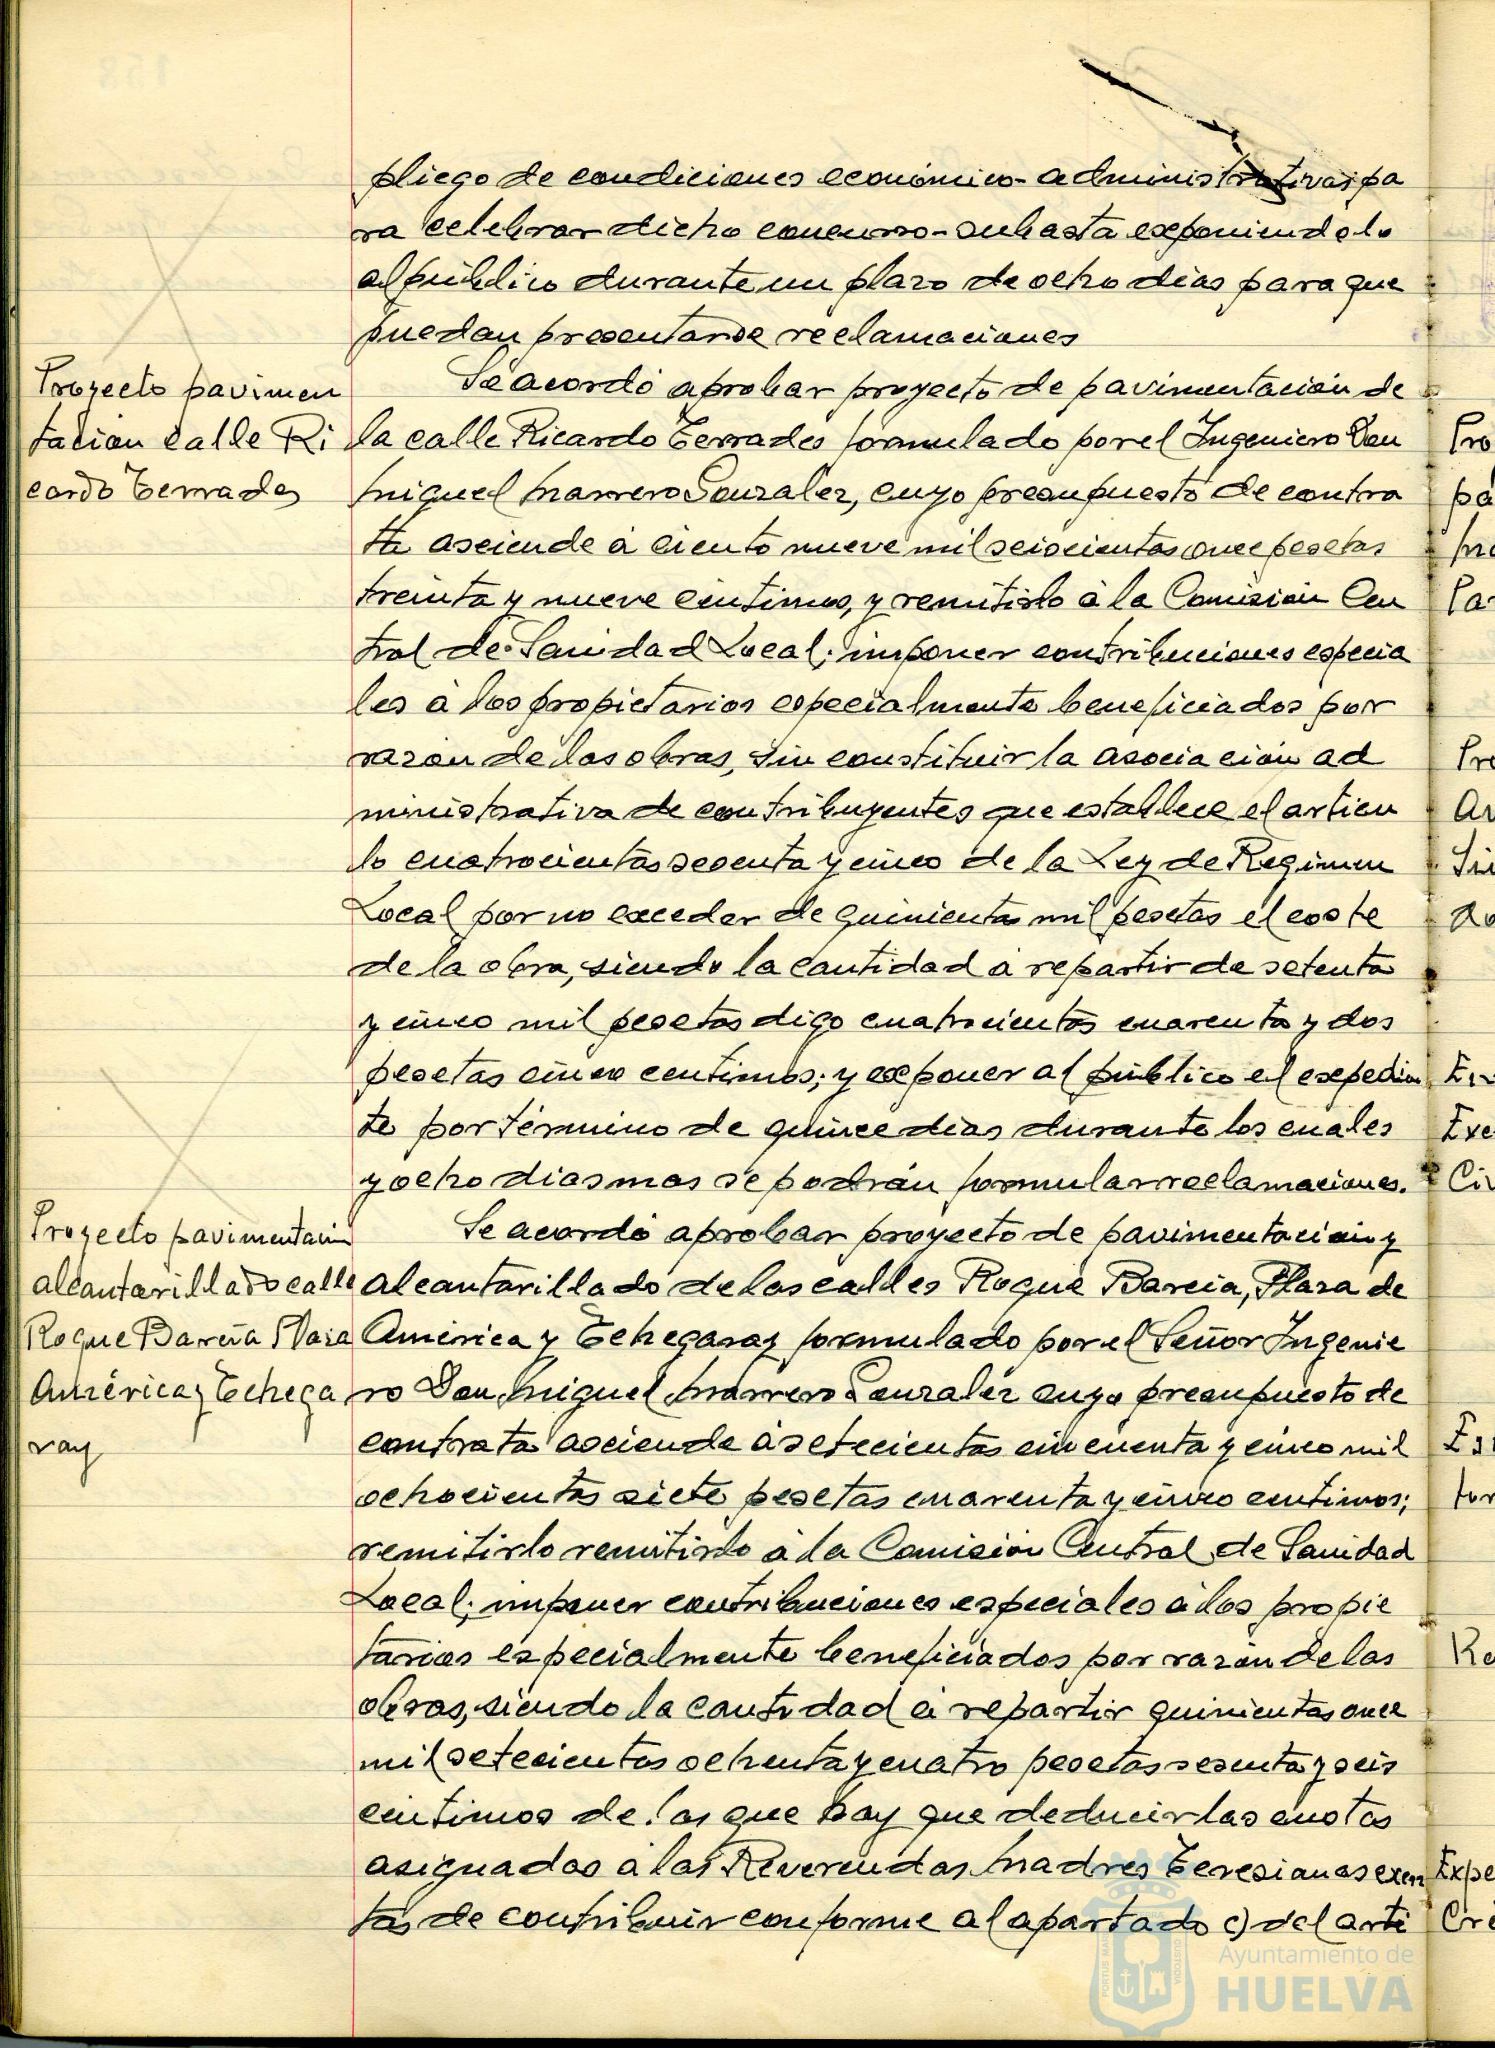 pliego de condiciones económico-administrativas pa
ra celebrar dicho concurso-subasta exponiendolo
al público durante un plazo de ocho dias para que
puedan presentarse reclamaciones
Proyecto pavimen
tacion calle Ri
cardo Terrades
Se acordó aprobar proyecto de pavimentación de
la calle Ricardo Terrades formulado por el Ingeniero Don
Miguel Marrero Gonzalez, cuyo presupuesto de contra
ta asciende á ciento nueve mil seiscientas once pesetas
treinta y nueve céntimos, y remitirlo á la Comisión Cen
tral de Sanidad Local; imponer contribuciones especia
les á los propietarios especialmente beneficiados por
razón de las obras, sin constituir la asociación ad
ministrativa de contribuyentes que establece el articu
lo cuatrocientos sesenta y cinco de la Ley de Regimen
Local por no exceder de quinientas mil pesetas el coste
de la obra, siendo la cantidad á repartir de setenta
y cinco mil pesetas digo cuatrocientas cuarenta y dos
pesetas cinco centimos; y exponer al público el expedien
te por término de quince dias durante los cuales
y ocho dias mas se podrán formular reclamaciones.
Proyecto pavimentación
alcantarillado calle
Roque Barcia Plaza
América y Echega
ray
Se acordó aprobar proyecto de pavimentación y
alcantarillado de las calles Roque Barcia, Plaza de
América y Echegaray formulado por el Señor Ingenie
ro Don Miguel Marrero Gonzalez cuyo presupuesto de
contrata asciende á setecientas cincuenta y cinco mil
ochocientas siete pesetas cuarenta y cinco centimos;
remitirlo remitirlo á la Comisión Central de Sanidad
Local; imponer contribuciones especiales á los propie
tarios especialmente beneficiados por razón de las
obras, siendo la cantidad á repartir quinientas once
mil setecientas ochenta y cuatro pesetas sesenta y seis
céntimos de las que hay que deducir las cuotas
asignadas á las Reverendas Madres Teresianas exen
tas de contribuir conforme al apartado c) del arti
Ayuntamiento de
HUELVA